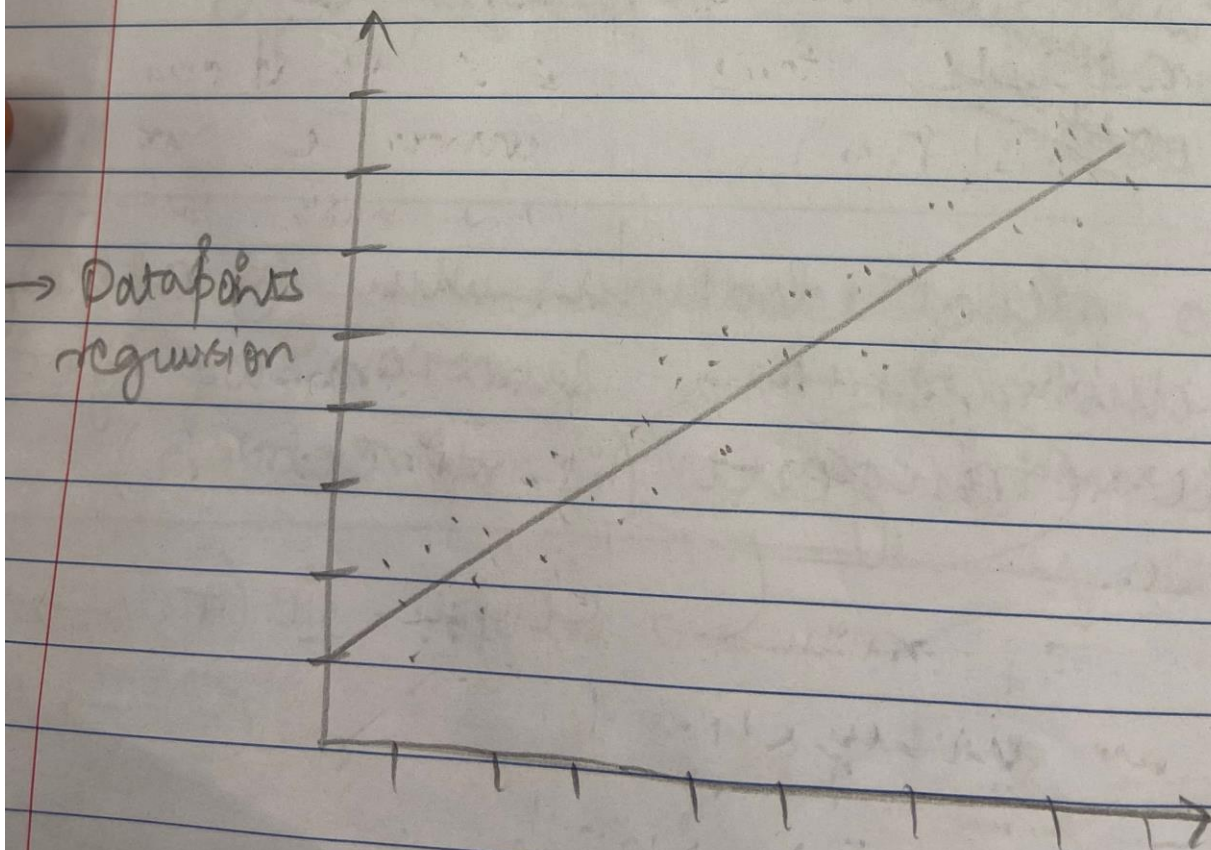 → Datapoints
regression